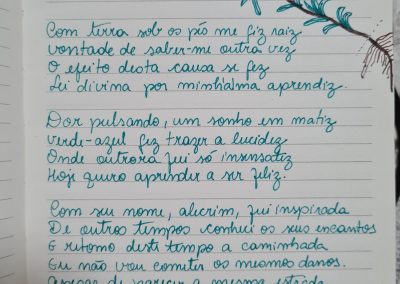 Com terra sob os pés me fiz raiz
vontade de saber-me outra vez
O efeito desta causa se fez
Lei divina por minh'alma aprendiz.
Dor pulsando, um sonho em matiz
verde-azul fez trazer a lucidez
Onde outrora fui só insensatez
Hoje quero aprender a ser feliz.
Com seu nome, alecrim, fui inspirada
De outros tempos conheci os seus encantos
E retomo deste tempo a caminhada
Eu não vou cometer os mesmos danos.
Apesar de parecer a mesma estrada